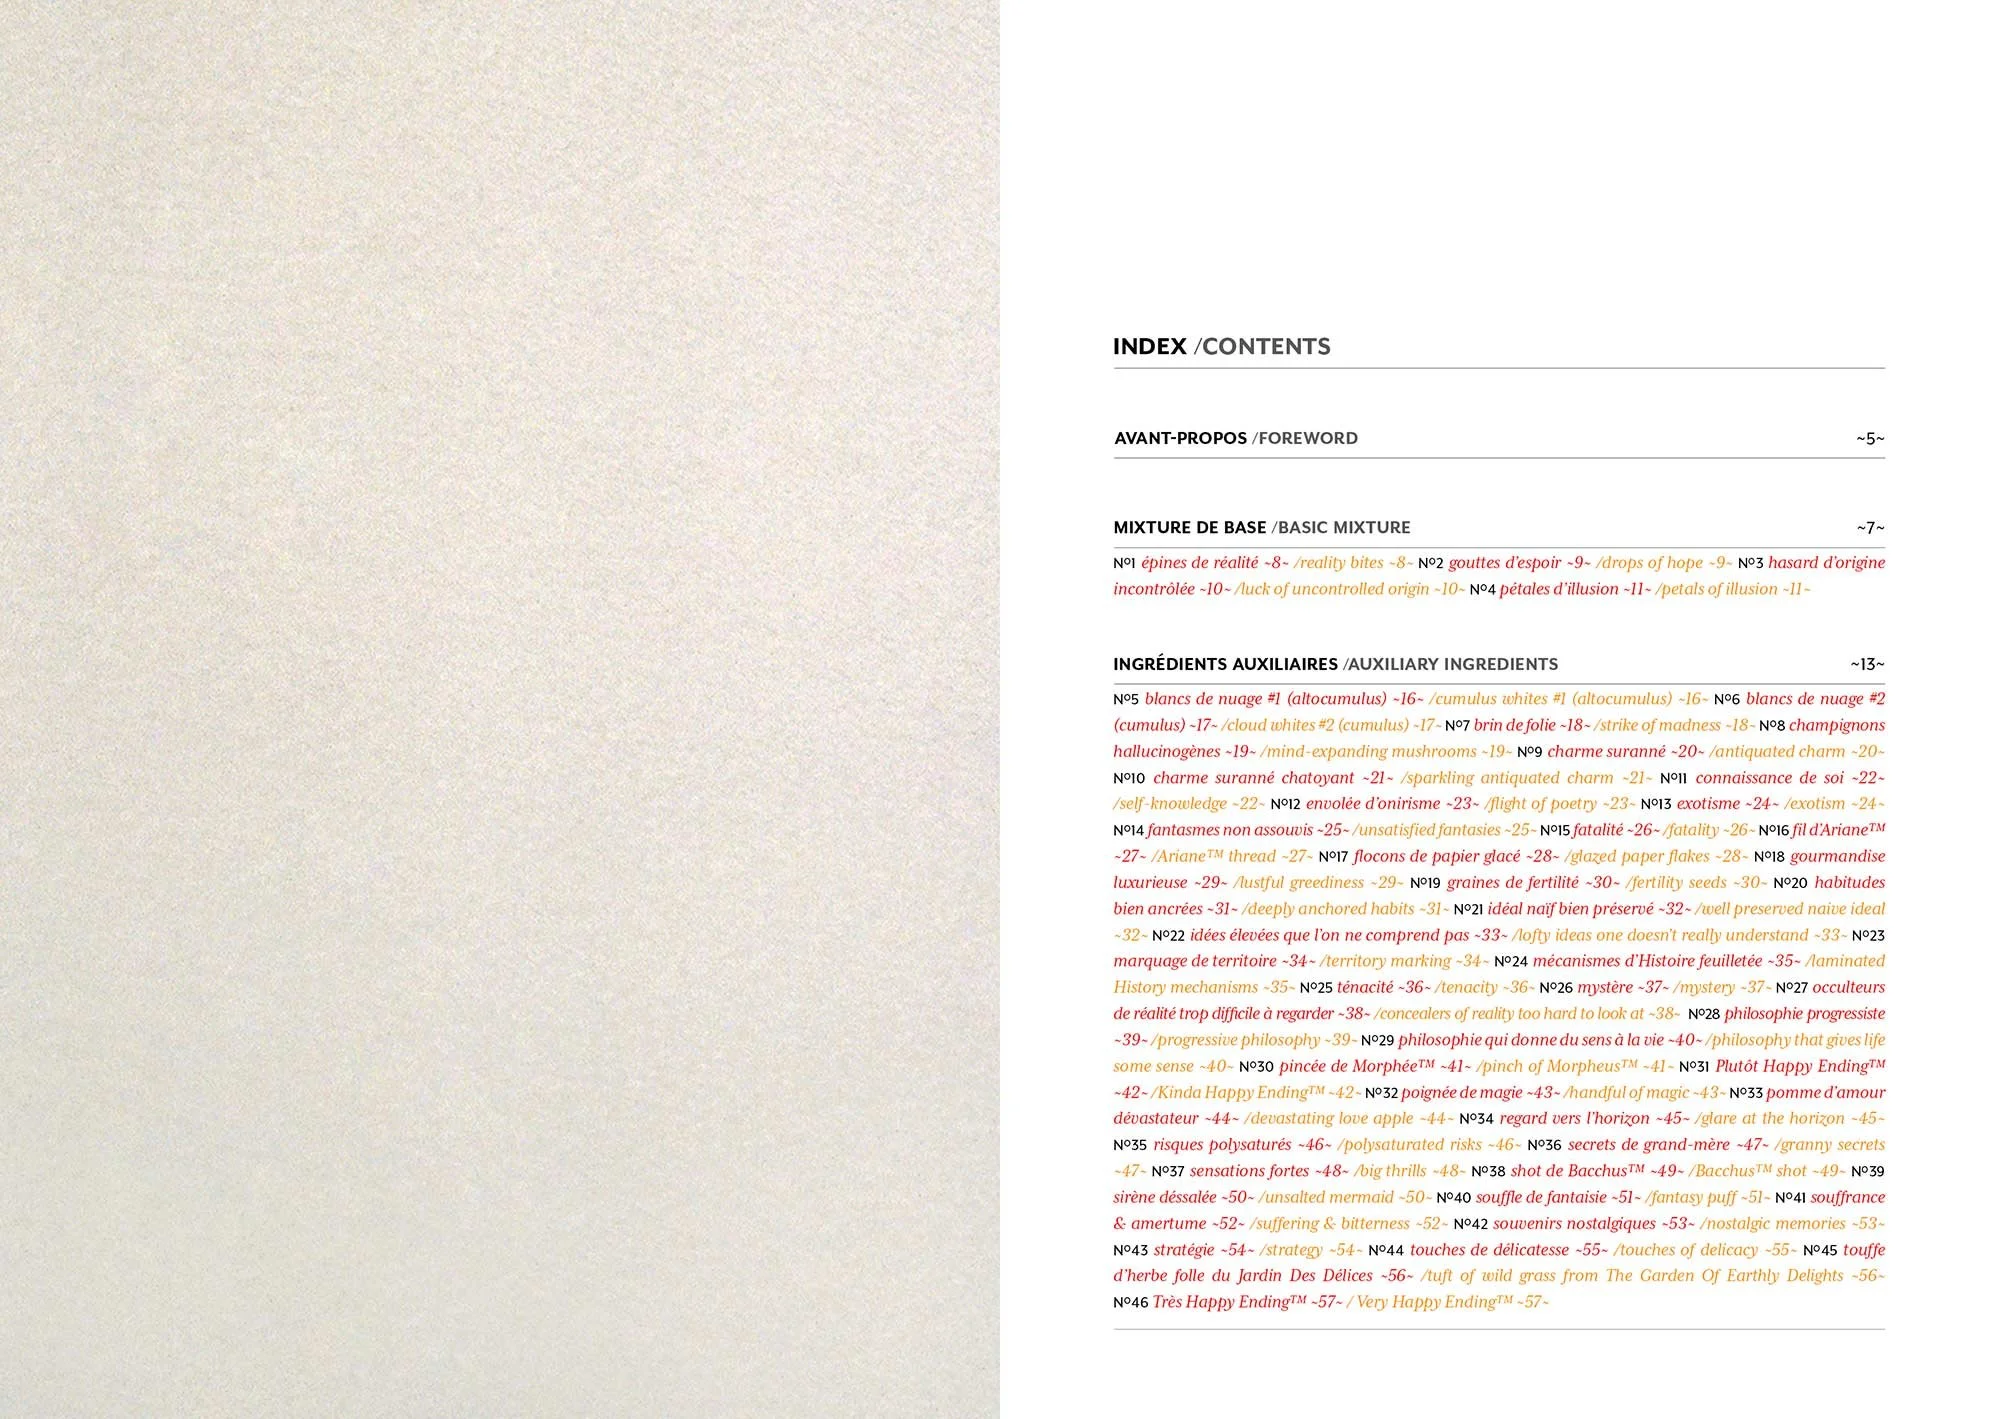 INDEX /CONTENTS
AVANT-PROPOS /FOREWORD ~5~
MIXTURE DE BASE /BASIC MIXTURE ~7~
Nº1 épines de réalité ~8~ /reality bites ~8~ Nº2 gouttes d'espoir ~9~ /drops of hope ~9~ Nº3 hasard d'origine
incontrôlée ~10~ /luck of uncontrolled origin ~10~ Nº4 pétales d'illusion ~11~ /petals of illusion ~11~
INGRÉDIENTS AUXILIAIRES /AUXILIARY INGREDIENTS ~13~
Nº5 blancs de nuage #1 (altocumulus) ~16~ /cumulus whites #1 (altocumulus) ~16~ Nº6 blancs de nuage #2
(cumulus) ~17~ /cloud whites #2 (cumulus) ~17~ Nº7 brin de folie ~18~ /strike of madness ~18~ Nº8 champignons
hallucinogènes ~19~ /mind-expanding mushrooms ~19~ Nº9 charme suranné ~20~ /antiquated charm ~20~
Nº10 charme suranné chatoyant ~21~ /sparkling antiquated charm ~21~ Nº11 connaissance de soi ~22~
/self-knowledge ~22~ Nº12 envolée d'onirisme ~23~ /flight of poetry ~23~ Nº13 exotisme ~24~ /exotism ~24~
Nº14 fantasmes non assouvis ~25~ /unsatisfied fantasies ~25~ Nº15 fatalité ~26~ /fatality ~26~ Nº16 fil d'Ariane™
~27~ /Ariane™ thread ~27~ Nº17 flocons de papier glacé ~28~ /glazed paper flakes ~28~ Nº18 gourmandise
luxurieuse ~29~ /lustful greediness ~29~ Nº19 graines de fertilité ~30~ /fertility seeds ~30~ Nº20 habitudes
bien ancrées ~31~ /deeply anchored habits ~31~ Nº21 idéal naïf bien préservé ~32~ /well preserved naive ideal
~32~ Nº22 idées élevées que l'on ne comprend pas ~33~ /lofty ideas one doesn't really understand ~33~ Nº23
marquage de territoire ~34~ /territory marking ~34~ Nº24 mécanismes d'Histoire feuilletée ~35~ /laminated
History mechanisms ~35~ Nº25 ténacité ~36~ /tenacity ~36~ Nº26 mystère ~37~ /mystery ~37~ Nº27 occulteurs
de réalité trop difficile à regarder ~38~ /concealers of reality too hard to look at ~38~ Nº28 philosophie progressiste
~39~ /progressive philosophy ~39~ Nº29 philosophie qui donne du sens à la vie ~40~ /philosophy that gives life
some sense ~40~ Nº30 pincée de Morphée™ ~41~ /pinch of Morpheus™ ~41~ Nº31 Plutôt Happy Ending™
~42~ /Kinda Happy Ending™ ~42~ Nº32 poignée de magie ~43~ /handful of magic ~43~ Nº33 pomme d'amour
dévastateur ~44~ /devastating love apple ~44~ Nº34 regard vers l'horizon ~45~ /glare at the horizon ~45~
Nº35 risques polysaturés ~46~ /polysaturated risks ~46~ Nº36 secrets de grand-mère ~47~ /granny secrets
~47~ Nº37 sensations fortes ~48~ /big thrills ~48~ Nº38 shot de Bacchus™ ~49~ /Bacchus™ shot ~49~ Nº39
sirène déssalée ~50~ /unsalted mermaid ~50~ Nº40 souffle de fantaisie ~51~ /fantasy puff ~51~ Nº41 souffrance
& amertume ~52~ /suffering & bitterness ~52~ Nº42 souvenirs nostalgiques ~53~ /nostalgic memories ~53~
Nº43 stratégie ~54~ /strategy ~54~ Nº44 touches de délicatesse ~55~ /touches of delicacy ~55~ Nº45 touffe
d'herbe folle du Jardin Des Délices ~56~ /tuft of wild grass from The Garden Of Earthly Delights ~56~
Nº46 Très Happy Ending™ ~57~ / Very Happy Ending™ ~57~